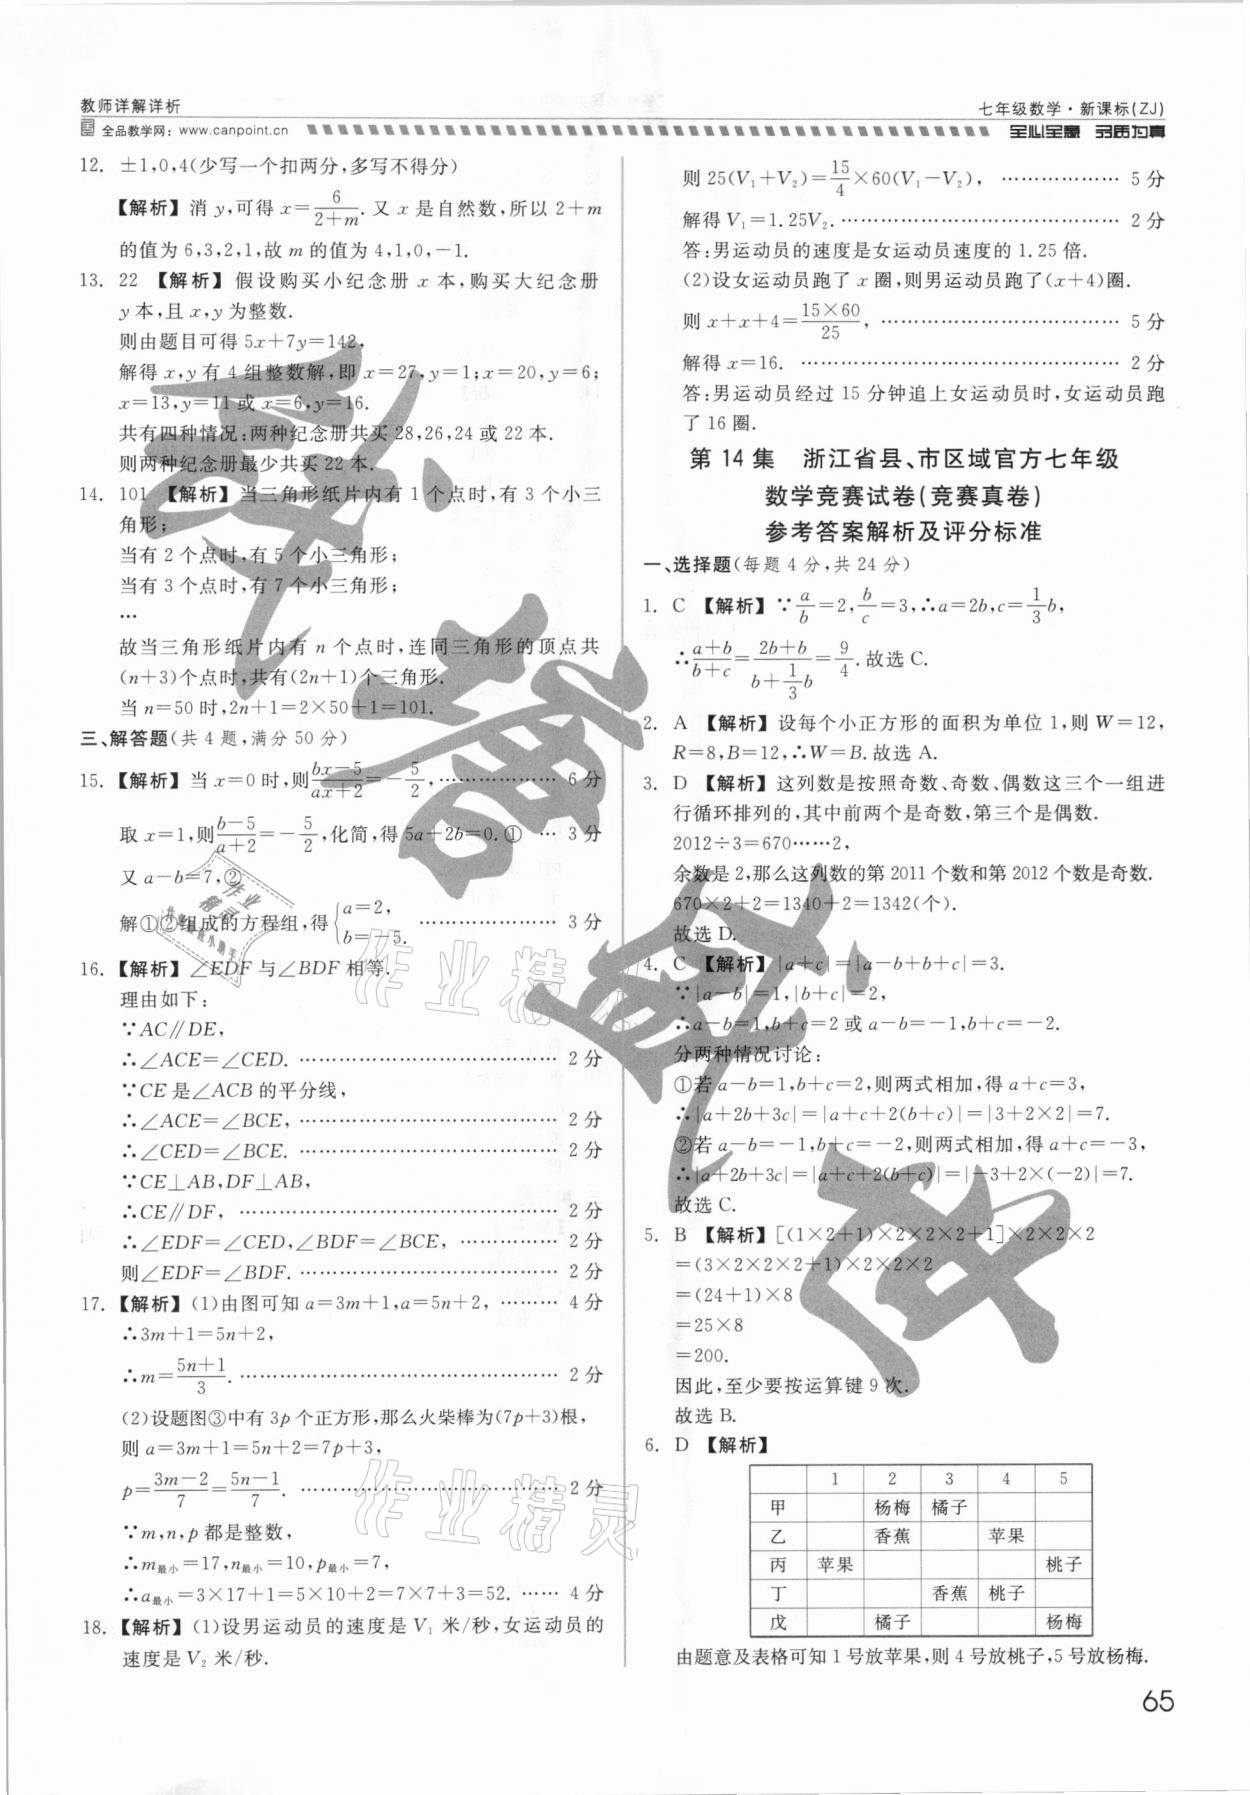 教师详解详析
七年级数学·新课标(ZJ)
全品教学网：www.canpoint.cn
全心全意 品质为真
12. ±1,0,4(少写一个扣两分,多写不得分)
【解析】消 y,可得 x=6/(2+m). 又 x 是自然数,所以 2+m
的值为 6,3,2,1,故 m 的值为 4,1,0,-1.
13. 22 【解析】假设购买小纪念册 x 本,购买大纪念册
y 本,且 x,y 为整数.
则由题目可得 5x+7y=142,
解得 x,y 有 4 组整数解,即 x=27,y=1;x=20,y=6;
x=13,y=11 或 x=6,y=16.
共有四种情况:两种纪念册共买 28,26,24 或 22 本.
则两种纪念册最少共买 22 本.
14. 101 【解析】当三角形纸片内有 1 个点时,有 3 个小三
角形;
当有 2 个点时,有 5 个小三角形;
当有 3 个点时,有 7 个小三角形;
…
故当三角形纸片内有 n 个点时,连同三角形的顶点共
(n+3)个点时,共有(2n+1)个三角形.
当 n=50 时,2n+1=2×50+1=101.
三、解答题(共 4 题,满分 50 分)
15. 【解析】当 x=0 时,则(bx-5)/(ax+2)=-5/2, ……………… 6 分
取 x=1,则(b-5)/(a+2)=-5/2,化简,得 5a+2b=0.① … 3 分
又 a-b=7,②
解①②组成的方程组,得{a=2,
b=-5. ……………… 3 分
16. 【解析】∠EDF 与∠BDF 相等.
理由如下:
∵AC∥DE,
∴∠ACE=∠CED. ……………… 2 分
∵CE 是∠ACB 的平分线,
∴∠ACE=∠BCE, ……………… 2 分
∴∠CED=∠BCE. ……………… 2 分
∵CE⊥AB,DF⊥AB,
∴CE∥DF, ……………… 2 分
∴∠EDF=∠CED,∠BDF=∠BCE, …………… 2 分
则∠EDF=∠BDF. ……………… 2 分
17. 【解析】(1)由图可知 a=3m+1,a=5n+2, ……… 4 分
∴3m+1=5n+2,
∴m=(5n+1)/3. ……………… 2 分
(2)设题图③中有 3p 个正方形,那么火柴棒为(7p+3)根,
则 a=3m+1=5n+2=7p+3,
p=(3m-2)/7=(5n-1)/7. ……………… 2 分
∵m,n,p 都是整数,
∴m最小=17,n最小=10,p最小=7,
∴a最小=3×17+1=5×10+2=7×7+3=52. …… 4 分
18. 【解析】(1)设男运动员的速度是 V₁ 米/秒,女运动员的
速度是 V₂ 米/秒.
则 25(V₁+V₂)=15/4×60(V₁-V₂), ……………… 5 分
解得 V₁=1.25V₂. ……………… 2 分
答:男运动员的速度是女运动员速度的 1.25 倍.
(2)设女运动员跑了 x 圈,则男运动员跑了(x+4)圈.
则 x+x+4=(15×60)/25, ……………… 5 分
解得 x=16. ……………… 2 分
答:男运动员经过 15 分钟追上女运动员时,女运动员跑
了 16 圈.
第 14 集 浙江省县、市区域官方七年级
数学竞赛试卷(竞赛真卷)
参考答案解析及评分标准
一、选择题(每题 4 分,共 24 分)
1. C 【解析】∵a/b=2,b/c=3,∴a=2b,c=1/3b,
∴(a+b)/(b+c)=(2b+b)/(b+1/3b)=9/4.故选 C.
2. A 【解析】设每个小正方形的面积为单位 1,则 W=12,
R=8,B=12,∴W=B.故选 A.
3. D 【解析】这列数是按照奇数、奇数、偶数这三个一组进
行循环排列的,其中前两个是奇数,第三个是偶数.
2012÷3=670……2,
余数是 2,那么这列数的第 2011 个数和第 2012 个数是奇数.
670×2+2=1340+2=1342(个).
故选 D.
4. C 【解析】|a+c|=|a-b+b+c|=3.
∵|a-b|=1,|b+c|=2,
∴a-b=1,b+c=2 或 a-b=-1,b+c=-2.
分两种情况讨论:
①若 a-b=1,b+c=2,则两式相加,得 a+c=3,
∴|a+2b+3c|=|a+c+2(b+c)|=|3+2×2|=7.
②若 a-b=-1,b+c=-2,则两式相加,得 a+c=-3,
∴|a+2b+3c|=|a+c+2(b+c)|=|-3+2×(-2)|=7.
故选 C.
5. B 【解析】[(1×2+1)×2×2×2+1]×2×2×2
=(3×2×2×2+1)×2×2×2
=(24+1)×8
=25×8
=200.
因此,至少要按运算键 9 次.
故选 B.
6. D 【解析】
1 2 3 4 5
甲 杨梅 橘子
乙 香蕉 苹果
丙 苹果 桃子
丁 香蕉 桃子
戊 橘子 杨梅
由题意及表格可知 1 号放苹果,则 4 号放桃子,5 号放杨梅.
65
作业精灵
作业精灵
作业精灵